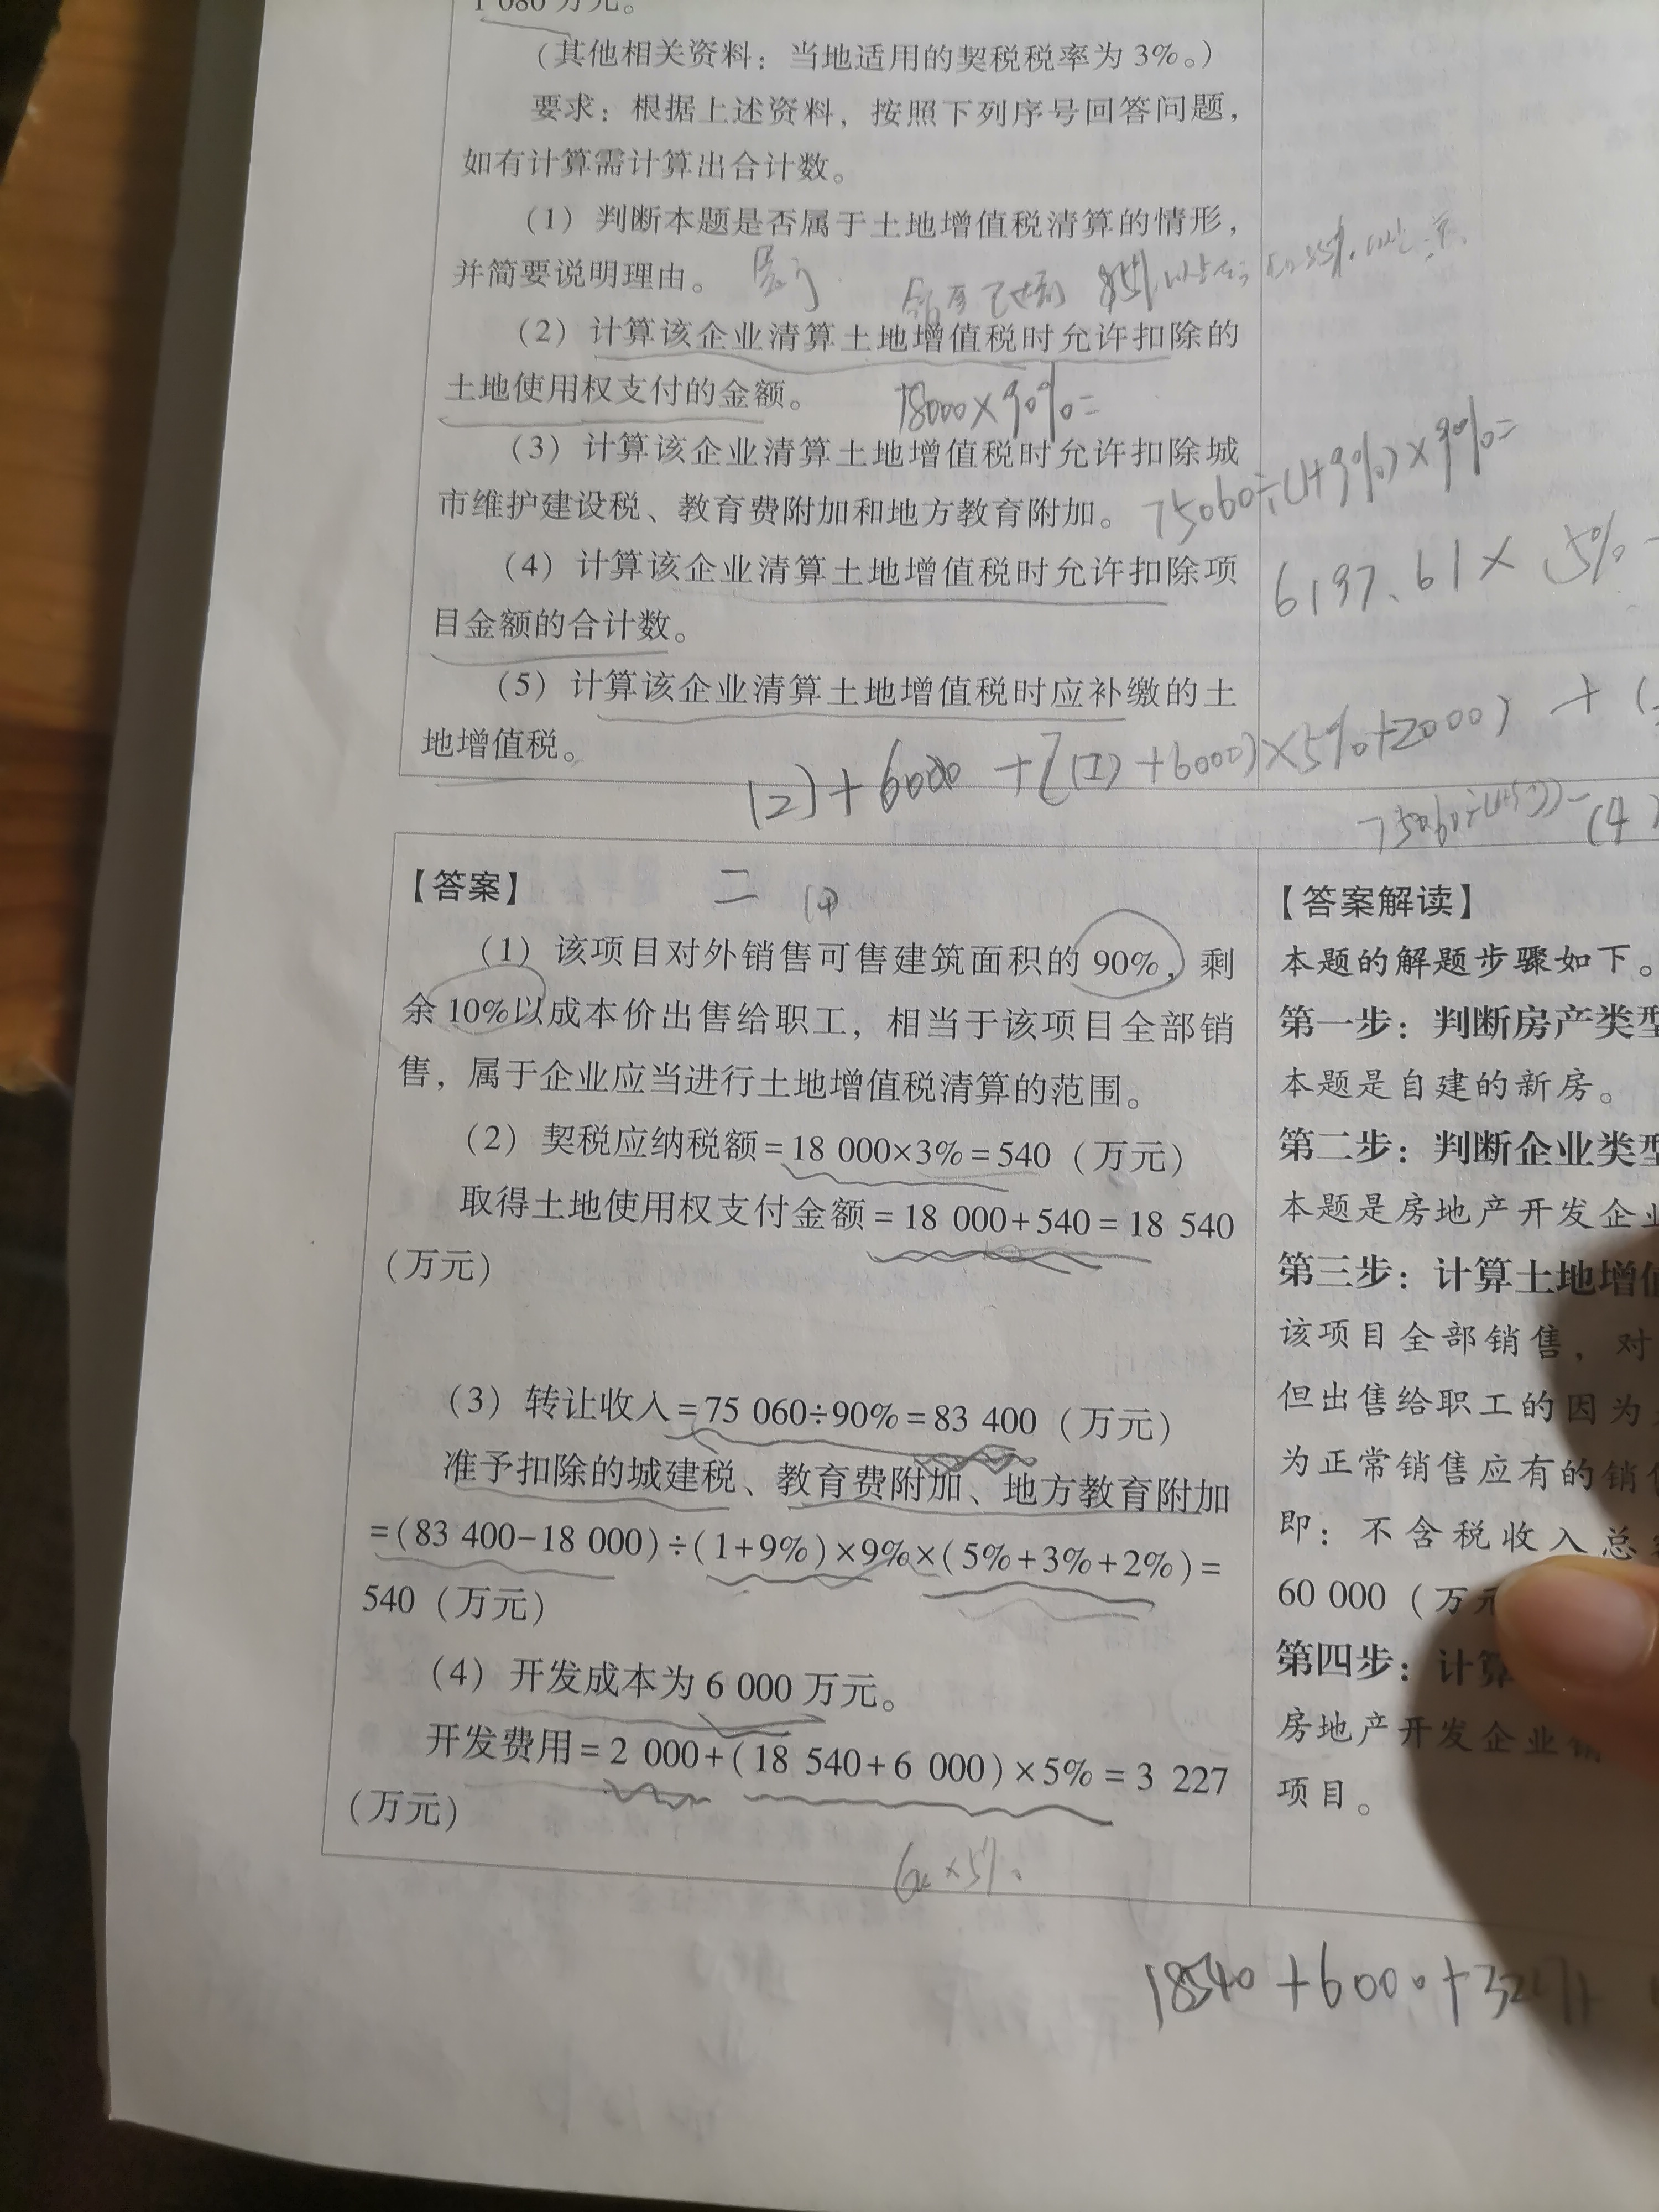 1 080万元。
(其他相关资料：当地适用的契税税率为3%。)
要求：根据上述资料，按照下列序号回答问题，
如有计算需计算出合计数。
(1) 判断本题是否属于土地增值税清算的情形，
并简要说明理由。 属于
(2) 计算该企业清算土地增值税时允许扣除的
土地使用权支付的金额。 18000×90%=
(3) 计算该企业清算土地增值税时允许扣除城
市维护建设税、教育费附加和地方教育附加。 75060÷(1+9%)×9%=
(4) 计算该企业清算土地增值税时允许扣除项
目金额的合计数。
6197.61×5%
(5) 计算该企业清算土地增值税时应补缴的土
地增值税。
(2)+6000+[(2)+6000)×5%+2000)+(
【答案】 二
(1) 该项目对外销售可售建筑面积的90%，剩
余10%以成本价出售给职工，相当于该项目全部销
售，属于企业应当进行土地增值税清算的范围。
(2) 契税应纳税额=18 000×3%=540（万元）
取得土地使用权支付金额=18 000+540=18 540
（万元）
(3) 转让收入=75 060÷90%=83 400（万元）
准予扣除的城建税、教育费附加、地方教育附加
=(83 400-18 000)÷(1+9%)×9%×(5%+3%+2%)=
540（万元）
(4) 开发成本为6 000万元。
开发费用=2 000+(18 540+6 000)×5%=3 227
（万元）
【答案解读】
本题的解题步骤如下。
第一步：判断房产类型
本题是自建的新房。
第二步：判断企业类型
本题是房地产开发企业
第三步：计算土地增值
该项目全部销售，对
但出售给职工的因为
为正常销售应有的销售
即：不含税收入总
60 000（万元
第四步：计算
房地产开发企业销
项目。
18540+6000+3227+